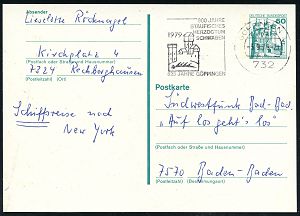 Absender
Lieselotte Röcknagel
Kirchplatz 4
(Postfach oder Straße und Hausnummer)
7324 Rechberghausen
(Postleitzahl) (Ort)
Schiffsreise nach
New York
800 JAHRE
STAUFISCHES
HERZOGTUM
SCHWABEN
1979
825 JAHRE GÖPPINGEN
732
DEUTSCHE BUNDESPOST
Postkarte
Südwestfunk Bad.-Bad.
"Auf los geht's los"
(Postfach oder Straße und Hausnummer)
7570 Baden-Baden
(Postleitzahl) (Bestimmungsort)